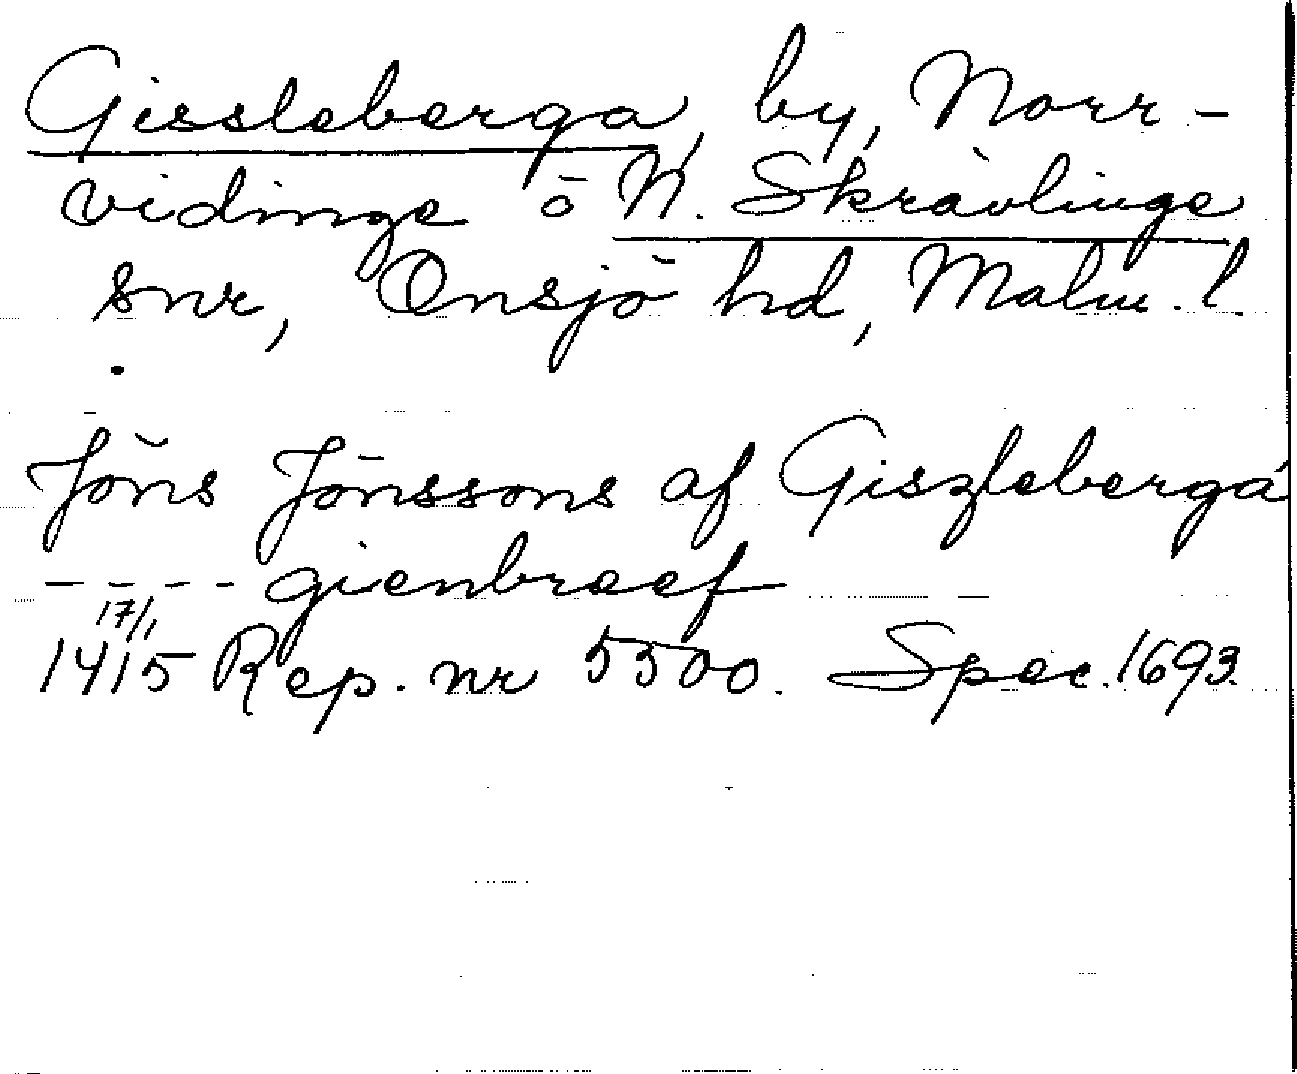 Gissleberga, by, Norr-
vidinge o N. Skrävlinge
snr, Onsjö hd, Malm. l.
Jöns Jönssons af Giszlebergá
- - - - gienbreef
17/1
1415 Rep. nr 5500. Spec. 1693.